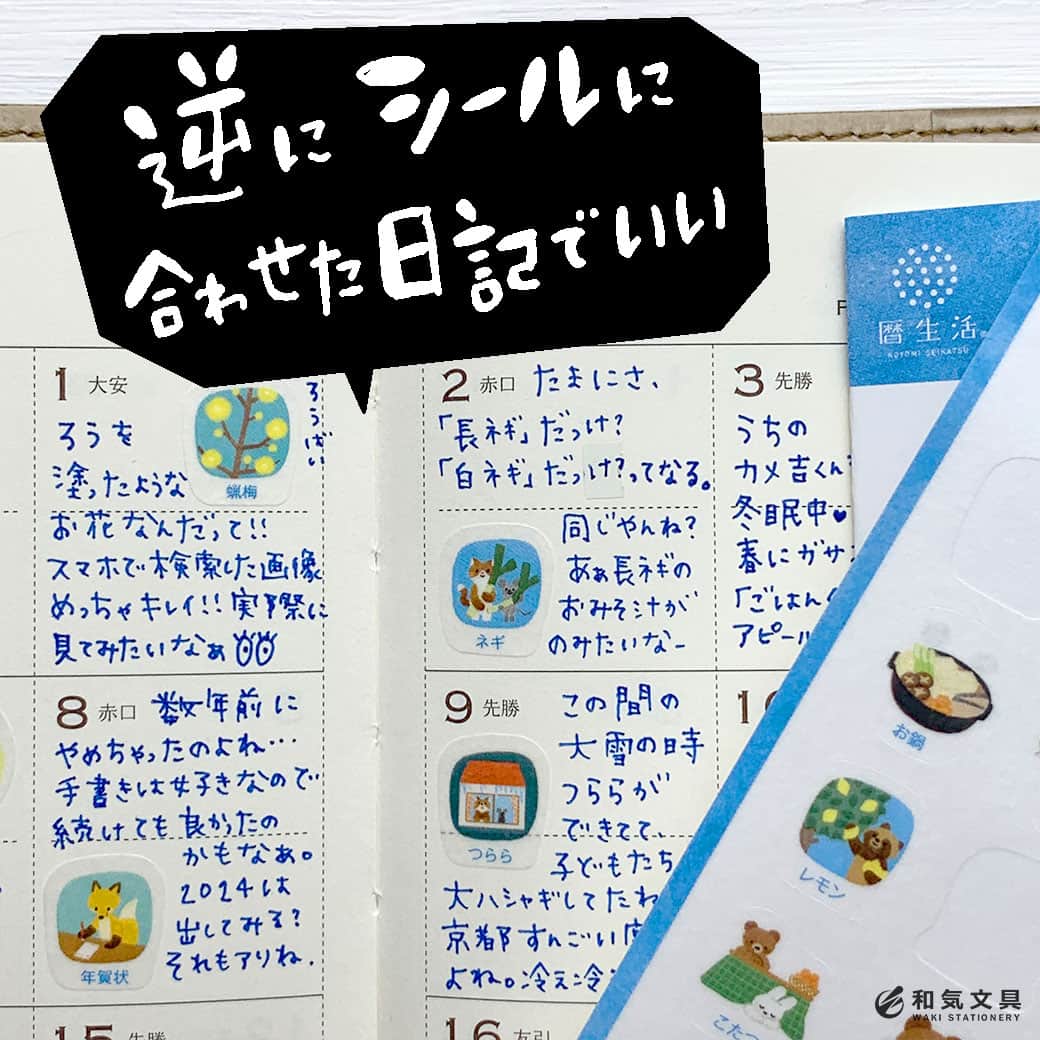 逆にシールに
合わせた日記でいい
暦生活
KOYOMI SEIKATSU
1 大安
ろうばい
ろうを
塗ったような
蝋梅
お花なんだって!!
スマホで検索した画像
めっちゃキレイ!!実際に
見てみたいなぁ
2 赤口 たまにさ、
「長ネギ」だっけ?
「白ネギ」だっけ?ってなる。
同じやんね?
あぁ長ネギの
おみそ汁が
のみたいなー
ネギ
3 先勝
うちの
カメ吉くん
冬眠中♥
春にガサ
「ごはん
アピール
8 赤口 数年前に
やめちゃったのよね…
手書きは好きなので
続けても良かったの
かもなぁ。
2024は
出してみる?
それもアリね.
年賀状
9 先勝 この間の
大雪の時
つららが
できてて、
子どもたち
大ハシャギしてたね
京都すんごい
よね。冷え冷
つらら
お鍋
レモン
こたつ
15 先勝
16 友引
和気文具
WAKI STATIONERY